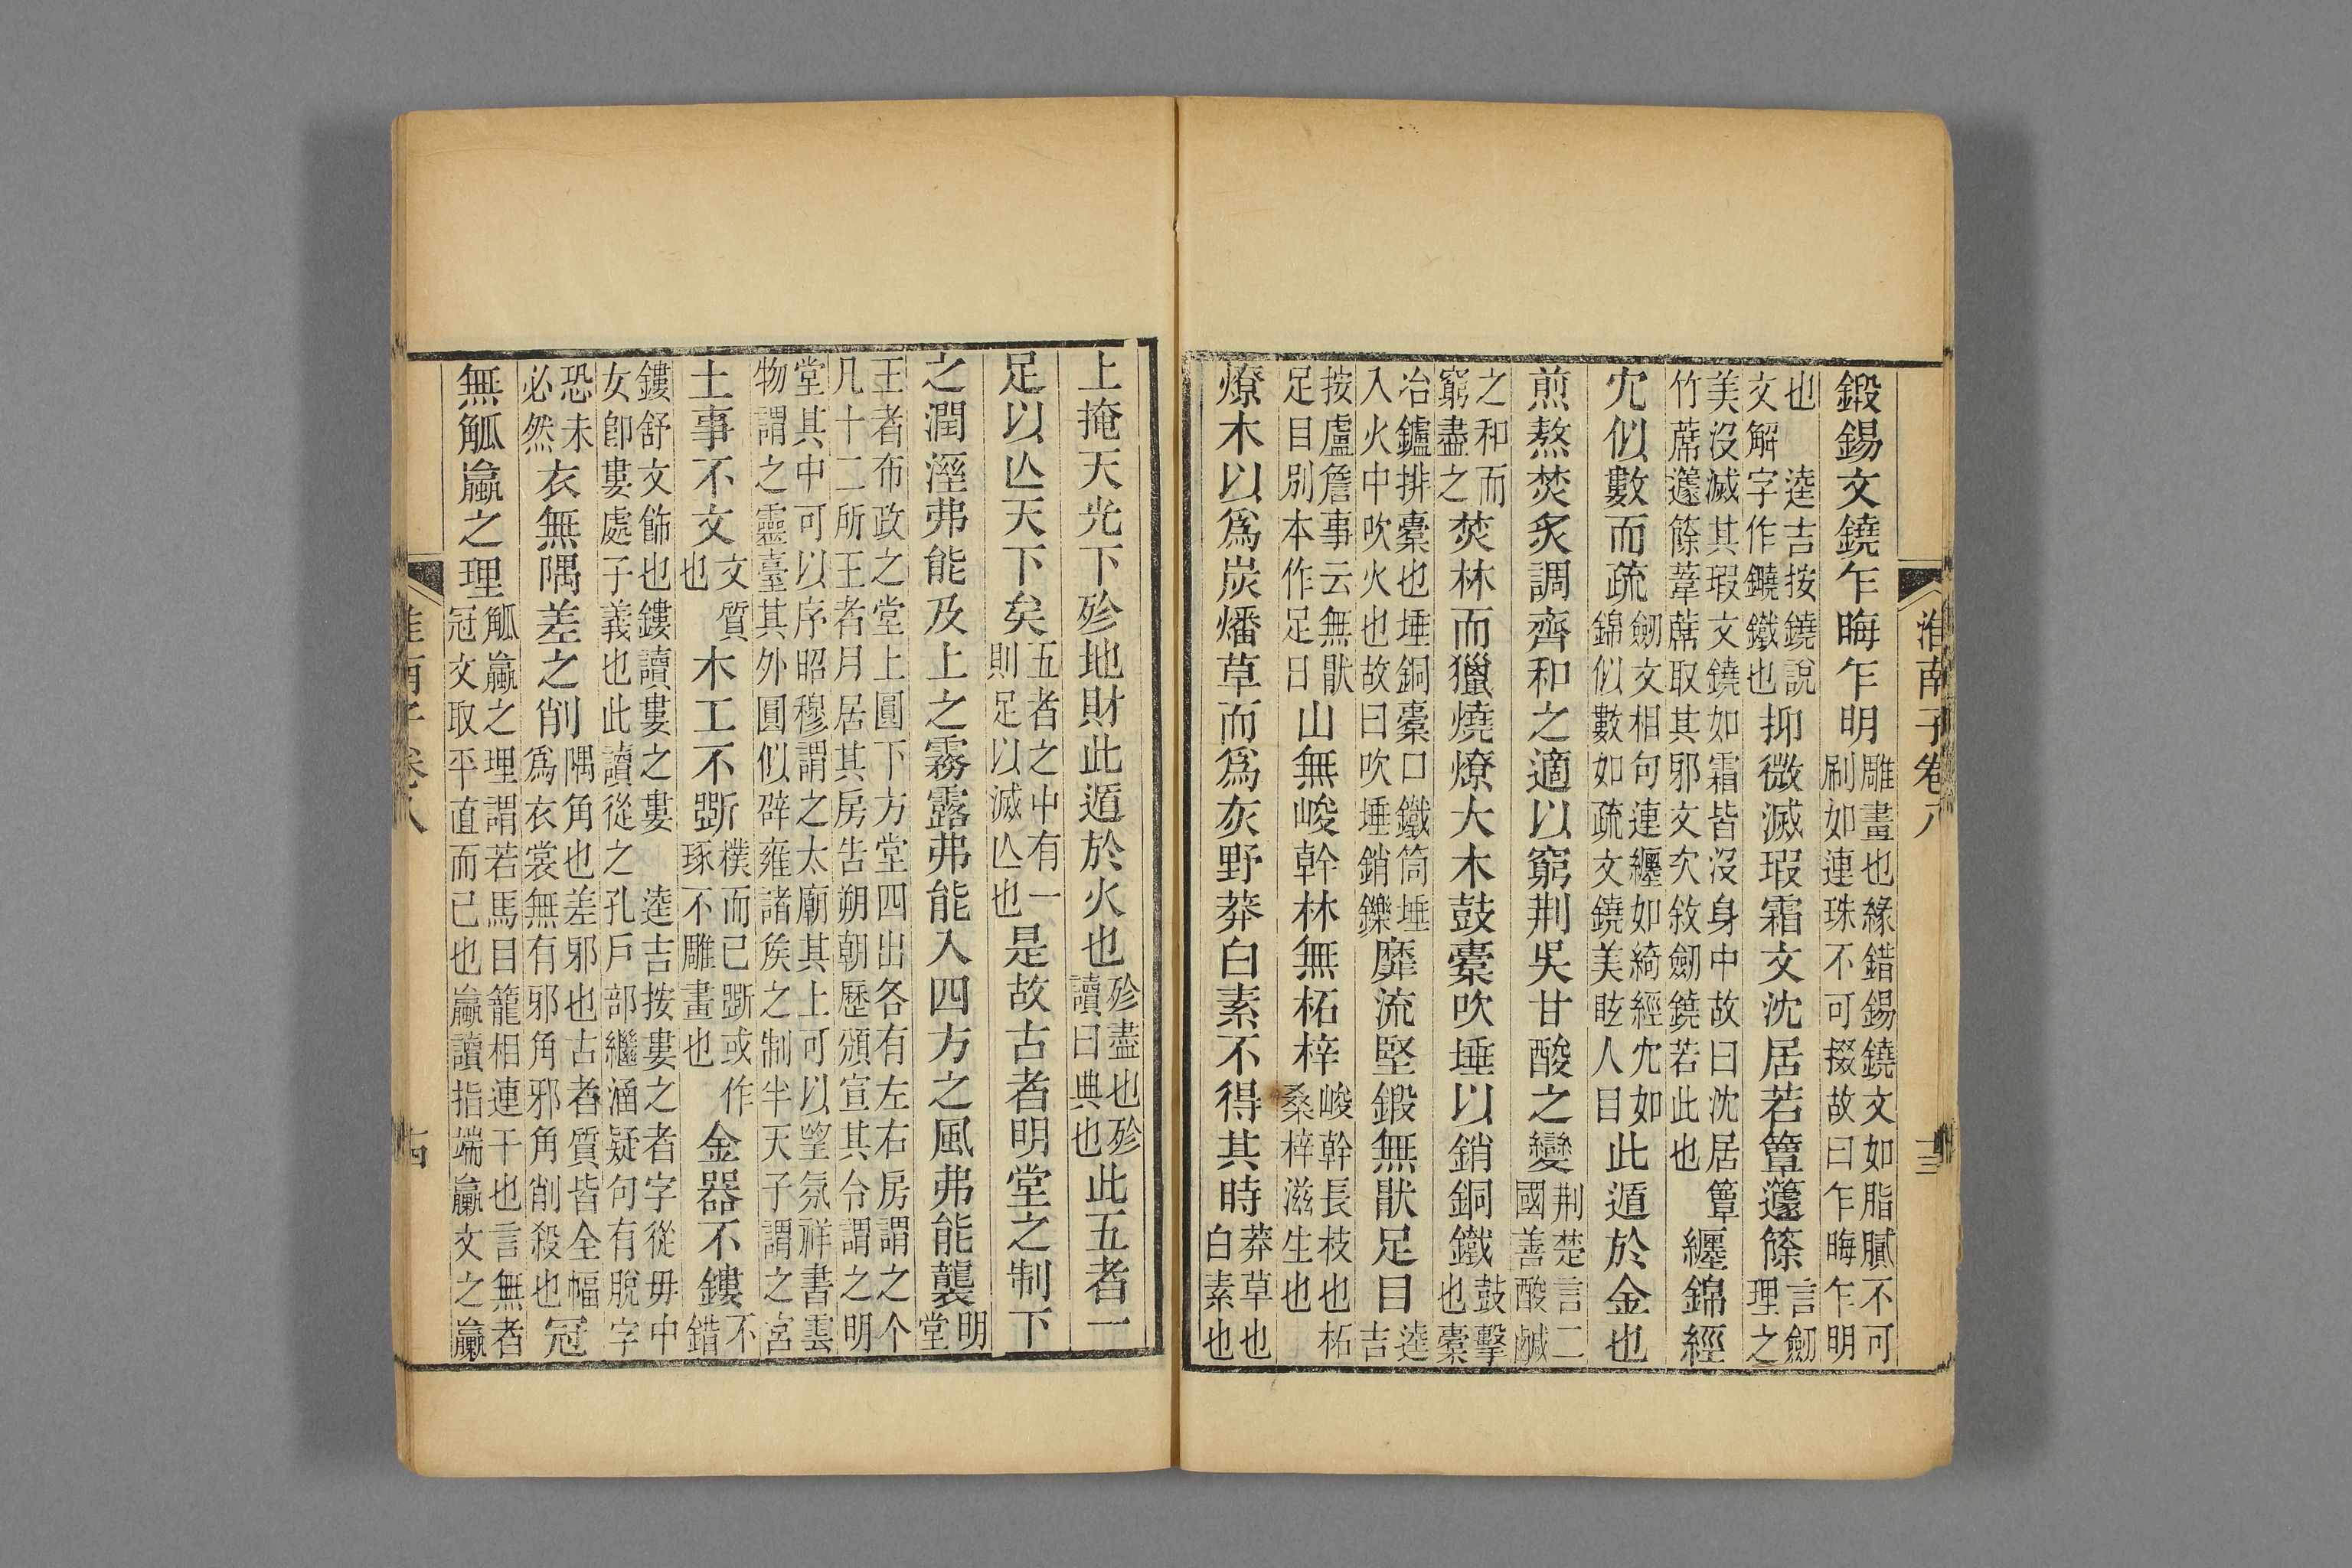 淮南子卷八
十三
鍛錫文鐃乍晦乍明雕畫也緣錯錫鐃文如脂膩不可
刷如連珠不可掇故曰乍晦乍明
也 逵吉按鐃說
文解字作鐃鐵也抑微滅瑕霜文沈居若簟籧篨言劒
理之
美沒滅其瑕文鐃如霜皆沒身中故曰沈居簟
竹蓆籧篨葦蓆取其邪文次敘劒鐃若此也纏錦經
宂似數而疏劒文相句連纏如綺經宂如
錦似數如疏文鐃美眩人目此遁於金也
煎熬焚炙調齊和之適以窮荆吳甘酸之變荆楚言二
國善酸鹹
之和而
窮盡之焚林而獵燒燎大木鼓橐吹埵以銷銅鐵鼓擊
也橐
冶鑪排橐也埵銅橐口鐵筒埵
入火中吹火也故曰吹埵銷鑠靡流堅鍛無猒足目逵
吉
按盧詹事云無猒
足目別本作足日山無峻幹林無柘梓峻幹長枝也柘
桑梓滋生也
燎木以爲炭燔草而爲灰野莽白素不得其時莽草也
白素也
上掩天光下殄地財此遁於火也殄盡也殄
讀曰典也此五者一
足以亾天下矣五者之中有一
則足以滅亾也是故古者明堂之制下
之潤溼弗能及上之霧露弗能入四方之風弗能襲明
堂
王者布政之堂上圓下方堂四出各有左右房謂之个
凡十二所王者月居其房告朔朝歷頒宣其令謂之明
堂其中可以序昭穆謂之太廟其上可以望氛祥書雲
物謂之靈臺其外圓似辟雍諸矦之制半天子謂之宮
土事不文文質
也木工不斵樸而已斵或作
琢不雕畫也金器不鏤不
錯
鏤舒文飾也鏤讀婁之婁 逵吉按婁之者字從毋中
女卽婁處子義也此讀從之孔戶部繼涵疑句有脫字
恐未
必然衣無隅差之削隅角也差邪也古者質皆全幅
爲衣裳無有邪角邪角削殺也冠
無觚蠃之理觚蠃之理謂若馬目籠相連干也言無者
冠文取平直而已也蠃讀指端蠃文之蠃
淮南子卷八
十四